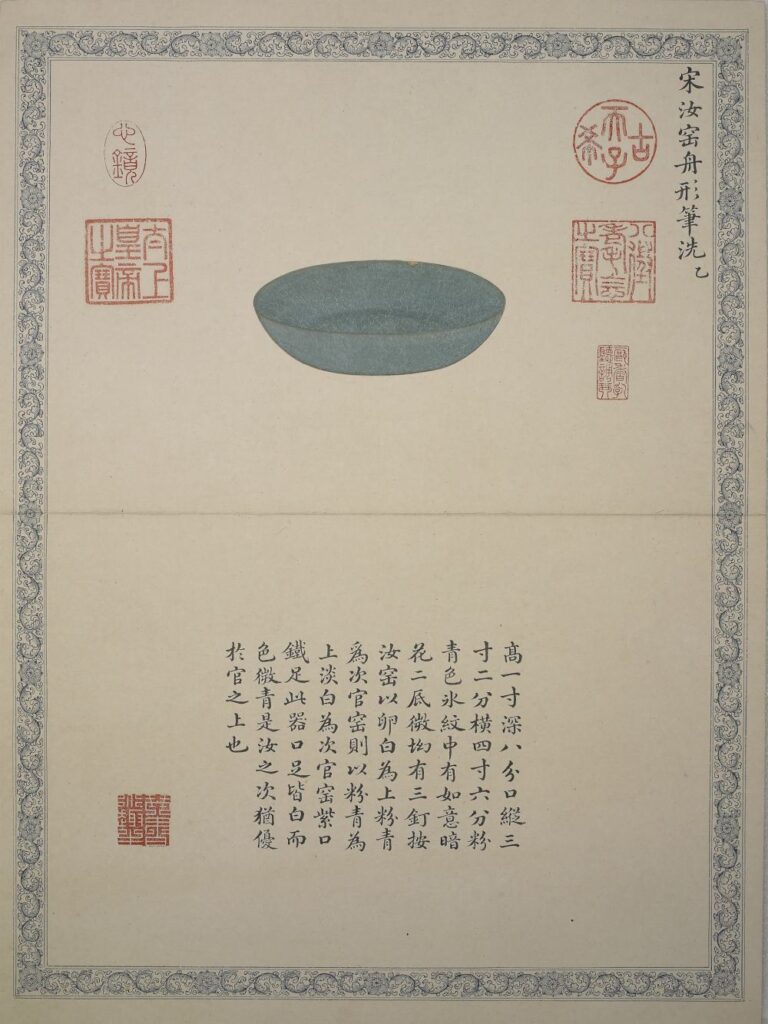 宋汝窑舟形筆洗乙
古希天子
八徵耄念之寶
心鏡
太上皇帝之寶
高一寸深八分口縱三
寸二分橫四寸六分粉
青色氷紋中有如意暗
花二底微坳有三釘按
汝窑以卵白為上粉青
爲次官窑則以粉青為
上淡白為次官窑紫口
鐵足此器口足皆白而
色微青是汝之次猶優
於官之上也